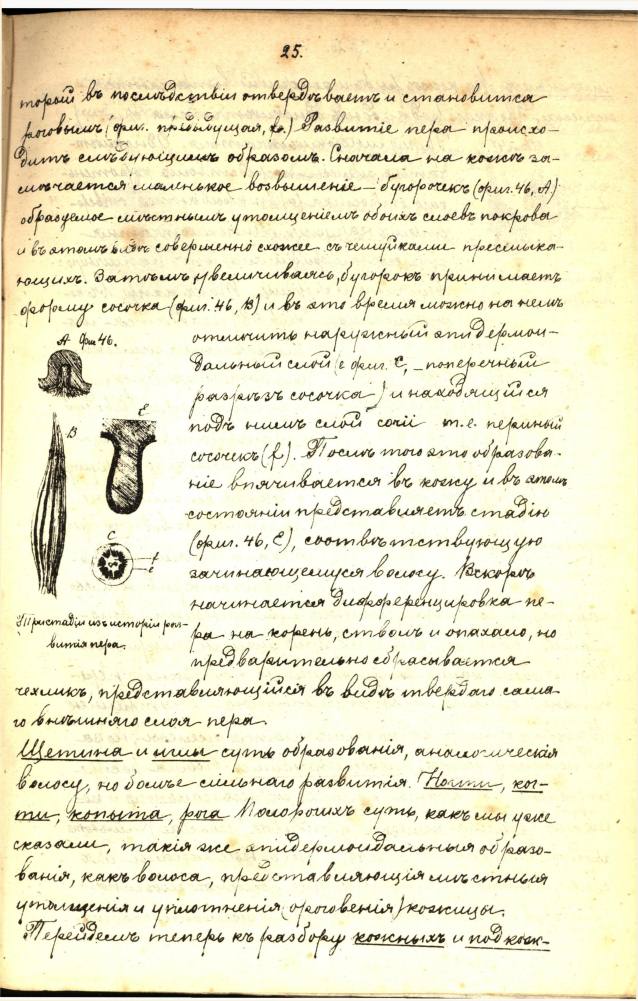 25.
торый въ послѣдствіи отвердѣваетъ и становится
роговымъ (фиг. предыдущая, f.) Развитіе пера происхо-
дитъ слѣдующимъ образомъ. Сначала на кожѣ за-
мѣчается маленькое возвышеніе – бугорочекъ (фиг. 46, А)
образуемое мѣстнымъ утолщеніемъ обоихъ слоевъ покрова
и въ этомъ видѣ совершенно схожее съ чешуйками пресмыка-
ющихъ. Затѣмъ, увеличиваясь, бугорокъ принимаетъ
форму сосочка (фиг. 46, В) и въ это время можно на немъ
отличить наружный эпидермои-
дальный слой (е фиг. С, – поперечный
разрѣзъ сосочка) и находящійся
подъ нимъ слой т.е. перяный
сосочекъ (f). Послѣ того это образова-
ніе впячивается въ кожу и въ этомъ
состояніи представляетъ стадію
(фиг. 46, Е), соотвѣтствующую
зачинающемуся волосу. Вскорѣ
начинается дифференцировка пе-
ра на корень, стволъ и опахало, но
предварительно сбрасывается
А Фиг 46.
В
Е
С
f
e
Три стадіи изъ исторіи раз-
витія пера.
чехликъ, представляющійся въ видѣ твердаго сама-
го внѣшняго слоя пера.
Щетина и иглы суть образованія, аналогическія
волосу, но болѣе сильнаго развитія. Ногти, ког-
ти, копыта, рога Полорогихъ суть, какъ мы уже
сказали, такія же эпидермоидальныя образо-
ванія, какъ волоса, представляющія мѣстныя
утолщенія и уплотненія (ороговенія) кожицы.
Перейдемъ теперь къ разбору кожныхъ и подкож-